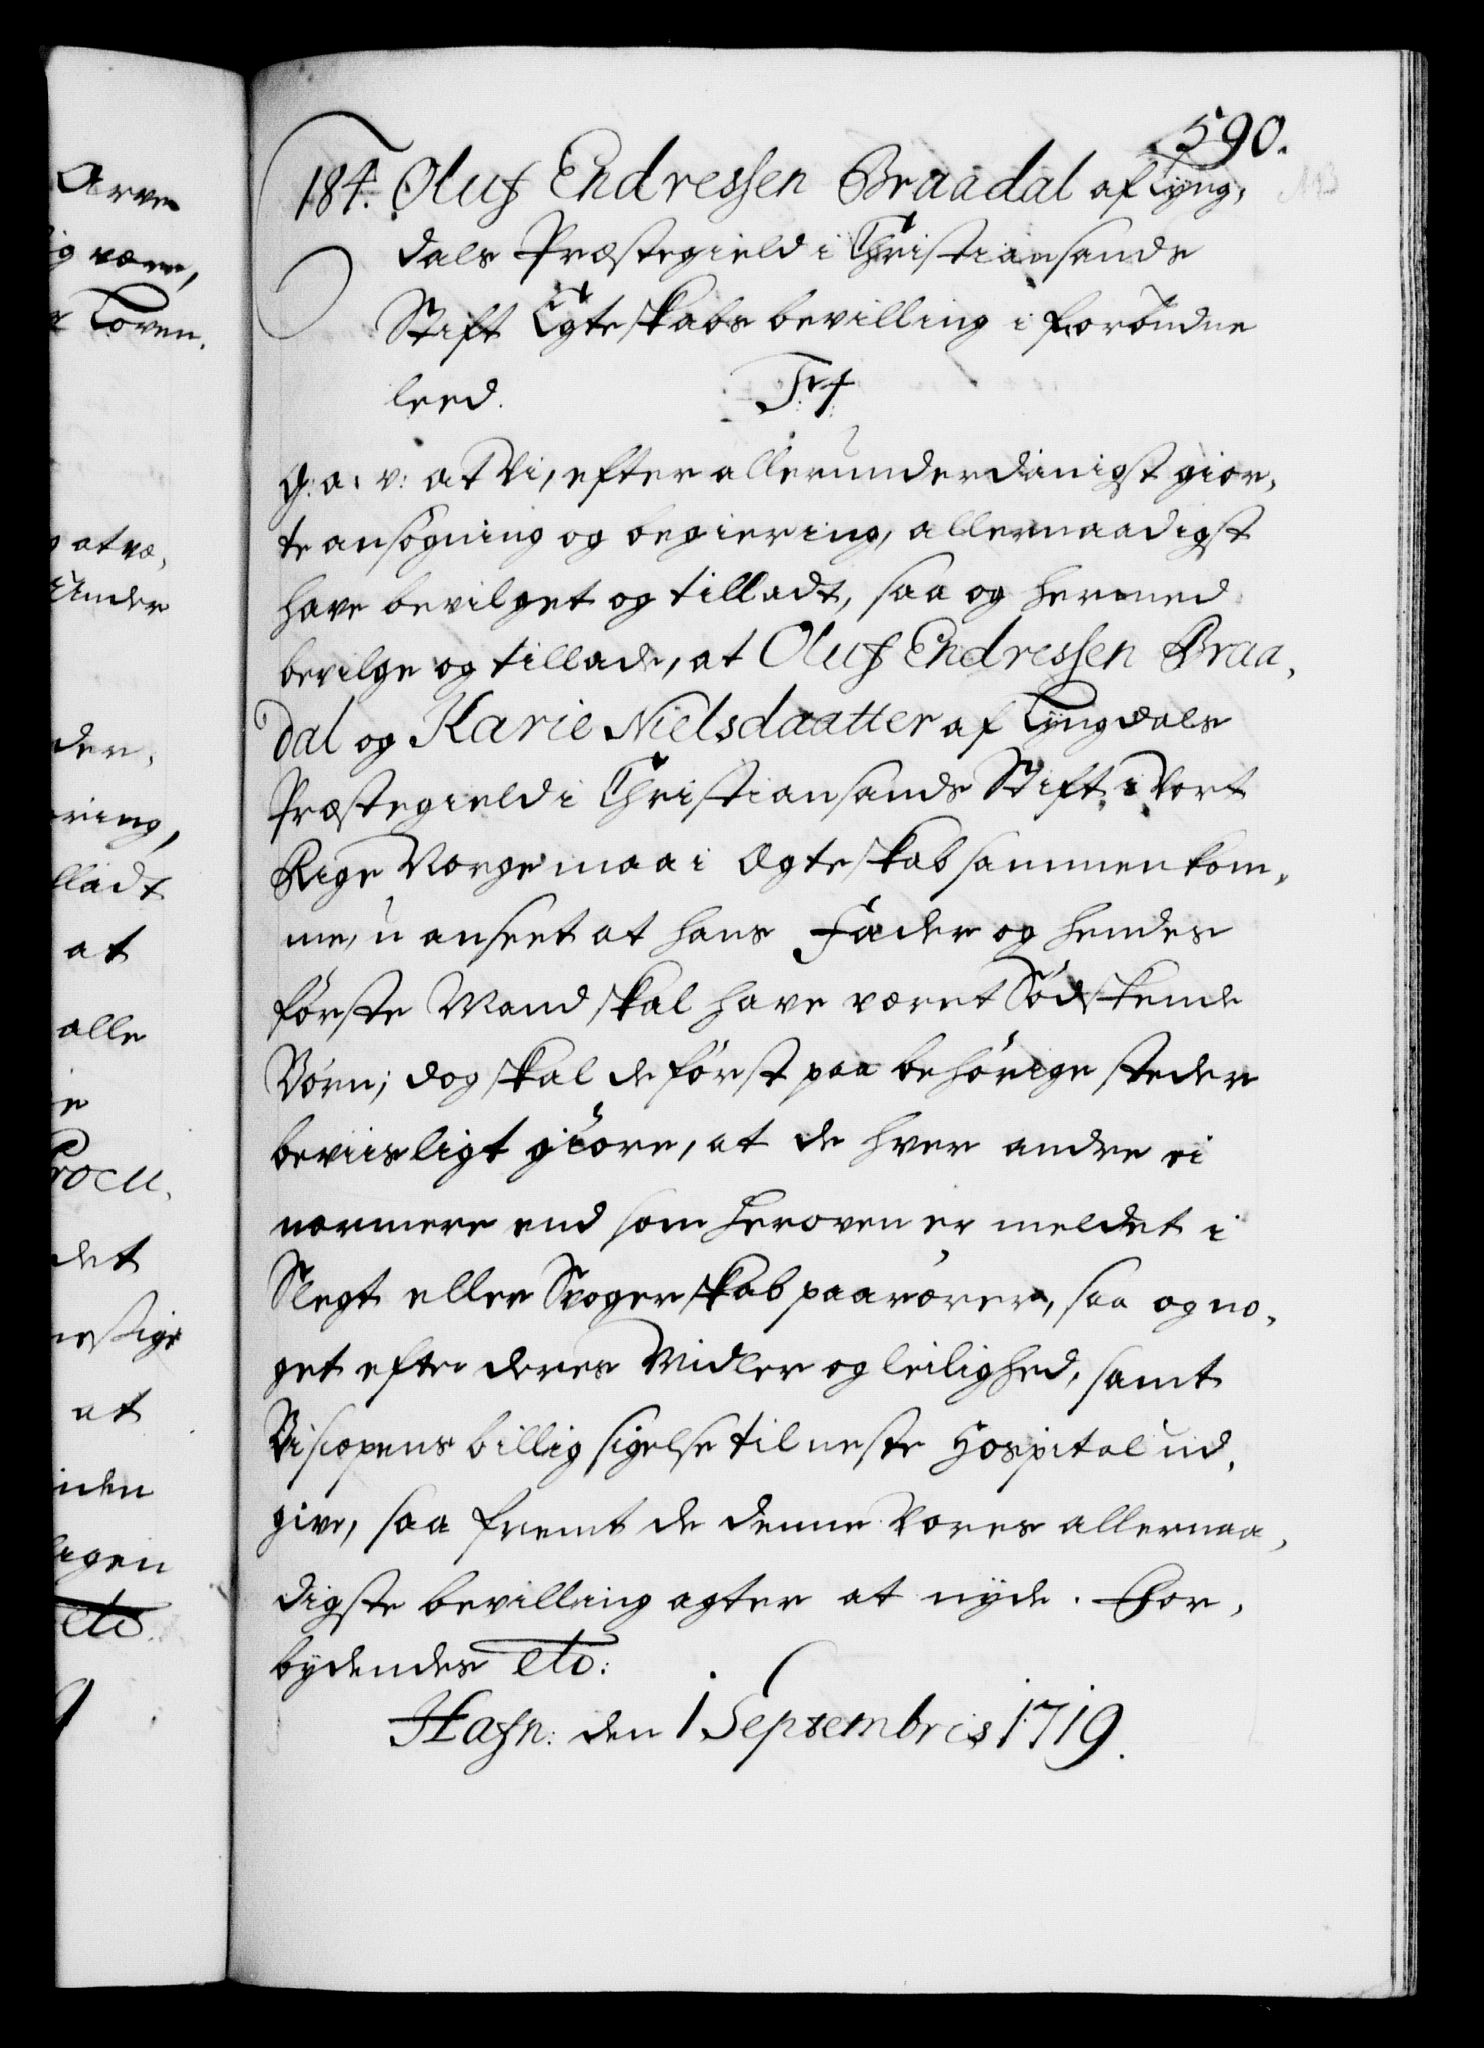 590.
184. Oluf Endressen Braadal af Lyng,
dals Præstegield i Christiansands
Stift Egteskabs bevilling i forbudne
leed. F: 4
G: a: v: at Vi, efter allerunderdanigst gior,
te ansøgning og begiering, allernaadigst
have bevilget og tilladt, saa og hermed
bevilge og tillade, at Oluf Endressen Braa,
dal og Karie Nielsdaatter af Lyngdals
Præstegield i Christiansands Stift i Vort
Rige Norge maa i Ægteskab sammenkom,
me, u anseet at hans Fader og hendes
første Mand skal have været Södskende
Börn; dog skal de først paa behörige steder
beviisligt giöre, at de hver andre ei
nærmere end som heroven er meldet i
Slegt eller Svogerskab paarörer, saa og no,
get efter deres Midler og leilighed, samt
Biscopens billig sigelse til neste Hospital ud,
give, saa fremt de denne Vores allernaa,
digste bevilling agter at nyde. For,
bydendes etc:
Hafn: den 1 Septembris 1719.
Arve
og være,
Loven.
at væ,
under
der,
ring,
lladt
at
alle
Procu,
det
at
inden
ligen
etc.